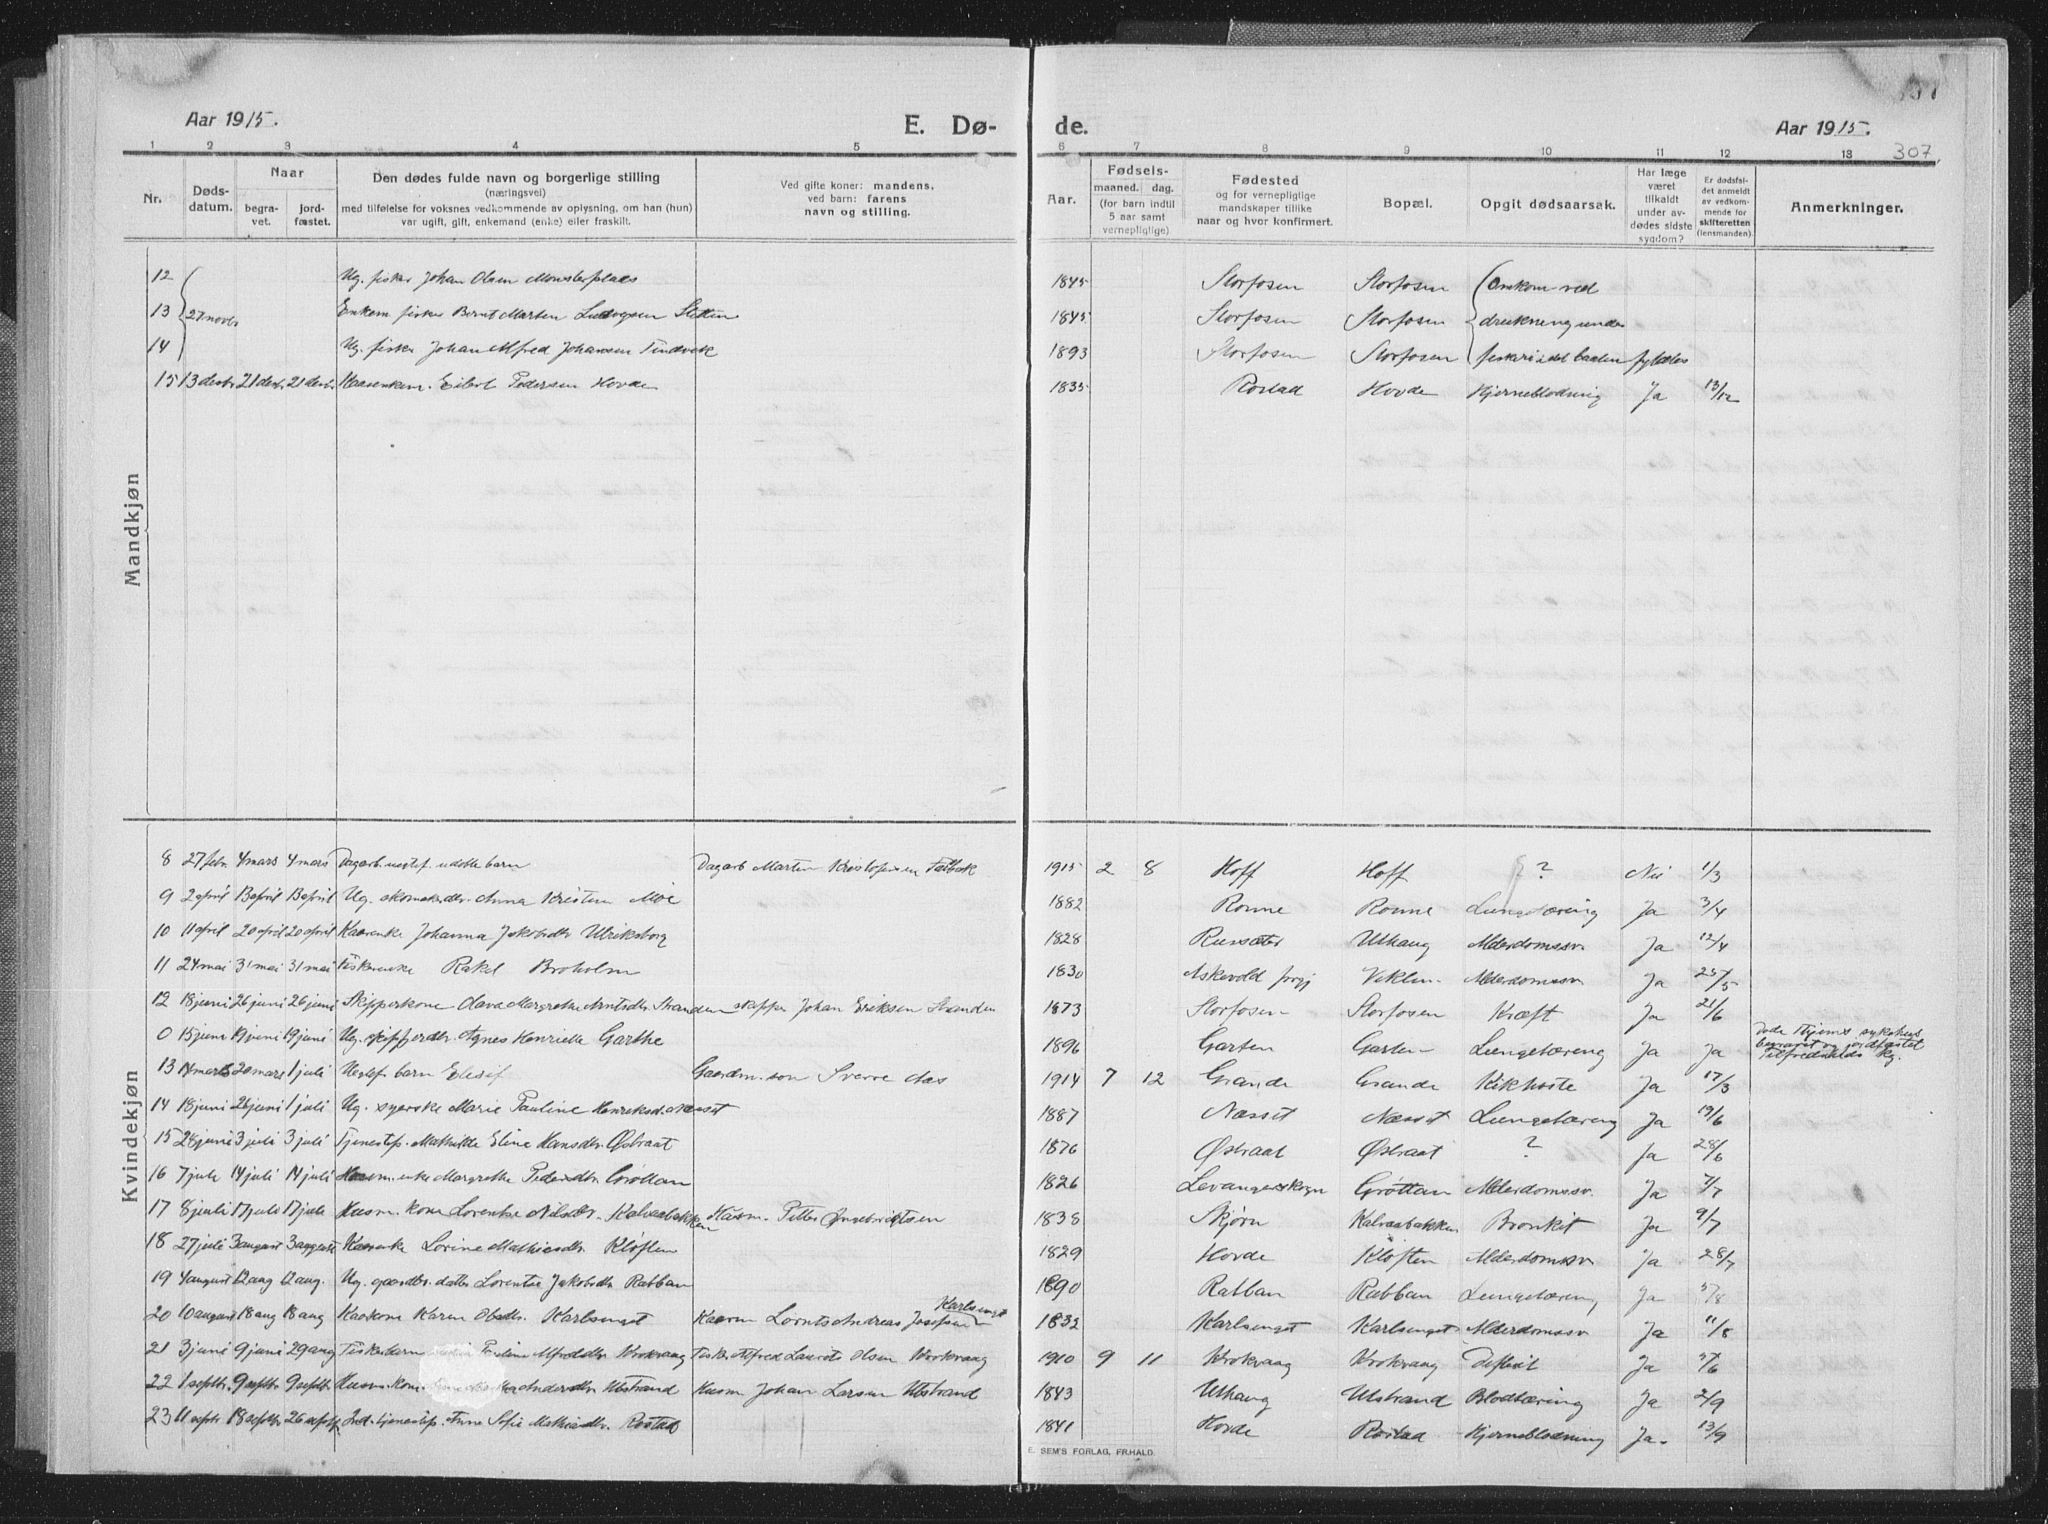 Aar 1915. E. Dø- de. Aar 1915.
1 2 3 4 5 6 7 8 9 10 11 12 13 307
Nr. Døds-datum. Naar begra-vet. jord-fæstet. Den dødes fulde navn og borgerlige stilling (næringsvei) med tilføielse for voksnes vedkommende av oplysning, om han (hun) var ugift, gift, enkemand (enke) eller fraskilt. Ved gifte koner: mandens, ved barn: farens navn og stilling. Aar. Fødsels-maaned. dag. (for barn indtil 5 aar samt vernepligtige) Fødested og for vernepligtige mandskaper tillike naar og hvor konfirmert. Bopæl. Opgit dødsaarsak. Har læge været tilkaldt under av-dødes sidste sygdom? Er dødsfal-det anmeldt av vedkom-mende for skifteretten (lensmanden). Anmerkninger.
Mandkjøn
12 Ug. fisker Johan Olsen Monsterplads 1845 Storfosen Storfosen Omkom ved
13 27 novbr Enkem. fisker Bernt Marten Ludvigsen Sletten 1845 Storfosen Storfosen drukning under
14 Ug. fisker Johan Alfred Johansen Tindvik 1893 Storfosen Storfosen fiskeri idet baaten fyldtes
15 13 desbr 21 desbr 21 desbr Kaarenkem. Eilert Pedersen Hovde 1835 Rostad Hovde Hjerneblødning Ja 13/12
Kvindekjøn
8 27 febr 4 mars 4 mars Dagarb. uegtef. udøbte barn Dagarb Marten Kristofersen 1915 2 8 Hoff Hoff ? Nei 1/3
9 2 april 13 april 13 april Ug. skomakerdtr. Anna Kristine Moe 1882 Rønne Rønne Lungetæring Ja 3/4
10 11 april 20 april 20 april Kaarenke Johanna Jakobsdtr Ulriksborg 1828 Russæter Uthaug Alderdomssv. Ja 12/4
11 24 mai 31 mai 31 mai Fiskerenke Rakel Broholm 1830 Askevold prgj Veklem Alderdomssv Ja 25/5
12 18 juni 26 juni 26 juni Skipperkone Olava Margrethe Arntsdtr. Stranden skipper Johan Eriksen Stranden 1873 Storfosen Storfosen Kræft Ja 21/6
0 15 juni 19 juni 19 juni Ug. skipperdtr. Agnes Henriette Garthe 1896 Garten Garten Lungetæring Ja Ja Døde Hjems sykehus begravet og jordfæstet
13 14 mars 20 mars 1 juli Uegtef. barn Elesif Gaardm. søn Sverre Aas 1914 7 12 Grande Grande Kikhoste Ja 17/3
14 18 juni 26 juni 1 juli Ug. syerske Marie Pauline Henriksd. Næsset 1887 Næsset Næsset Lungetæring Ja 19/6
15 28 juni 3 juli 3 juli Tjenestep. Mathilde Eline Hansdtr. Østraat 1876 Østraat Østraat ? Ja 28/6
16 7 juli 14 juli 14 juli Husm. enke Margrethe Pedersdtr Grøttan 1826 Levanger sogn Grøttan Alderdomssv. Ja 7/7
17 8 juli 17 juli 17 juli Husm. kone Lorentse Nilsdtr. Kalvaabakken Husm. Petter Ingebrigtsen 1838 Skjørn Kalvaabakken Bronkit Ja 9/7
18 27 juli 3 august 3 august Kaarenke Lorine Mathiasdtr. Kløften 1829 Hovde Kløften Alderdomssv Ja 28/7
19 4 august 12 aug 12 aug. Ug. gaardbr. datter Lorentse Jakobsdtr Rabban 1890 Rabban Rabban Lungetæring Ja 5/8
20 10 august 18 aug 18 aug Kaarkone Karen Olsdtr. Karlsenget Kaarm Lornts Andreas Josefsen Karlsenget 1832 Karlsenget Karlsenget Alderdomssv Ja 11/8
21 3 juni 9 juni 29 aug Fiskerbarn Pauline Alfreddtr. Krokvaag Fisker Alfred Laurits Olsen Krokvaag 1910 9 11 Krokvaag Krokvaag Difterit Ja 5/6
22 1 septbr. 9 septbr 9 septbr. Husm. kone Andersdtr. Ulstrand Husm Johan Larsen Ulstrand 1843 Uthaug Ulstrand Blodtæring Ja 2/9
23 11 septbr 18 septbr. 26 septbr Ind. tjenestep. Anne Sofie Mathiasdtr. Rostad 1841 Hovde Rostad Hjerneblødning Ja. 13/9
E. SEM'S FORLAG, FR.HALD.